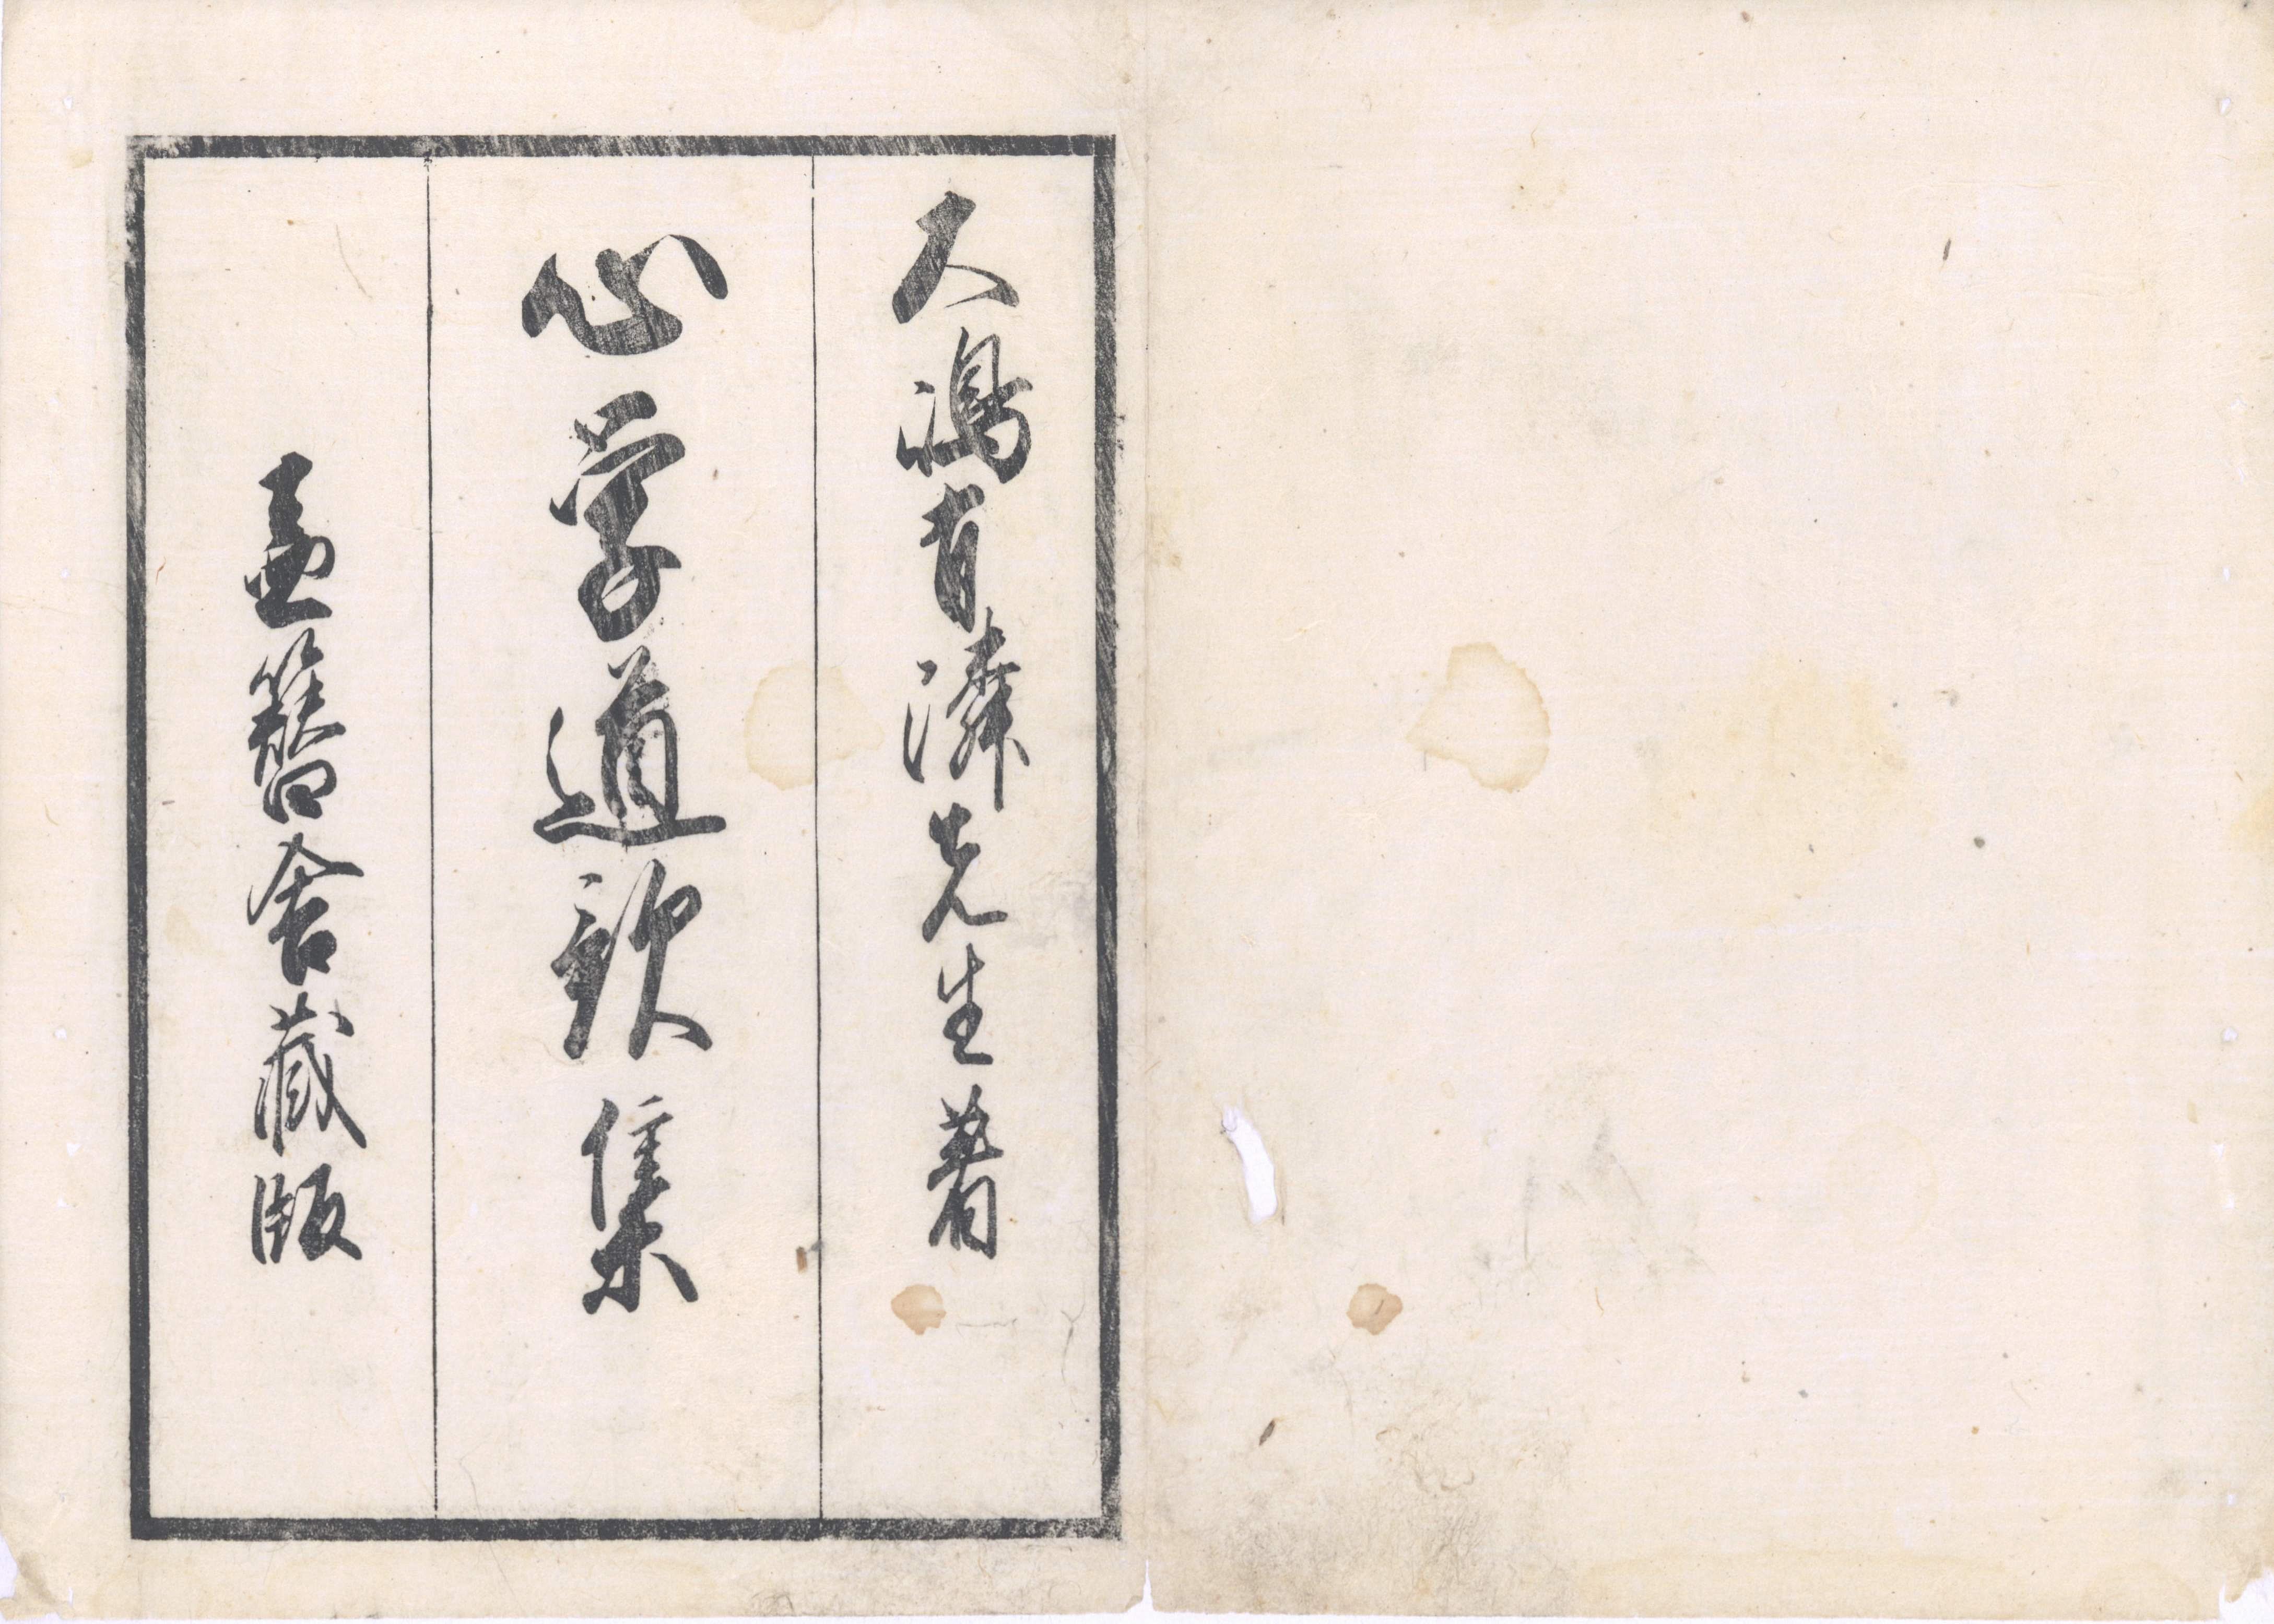 大嶋有隣先生著
心学道歌集
盍簪舎蔵版